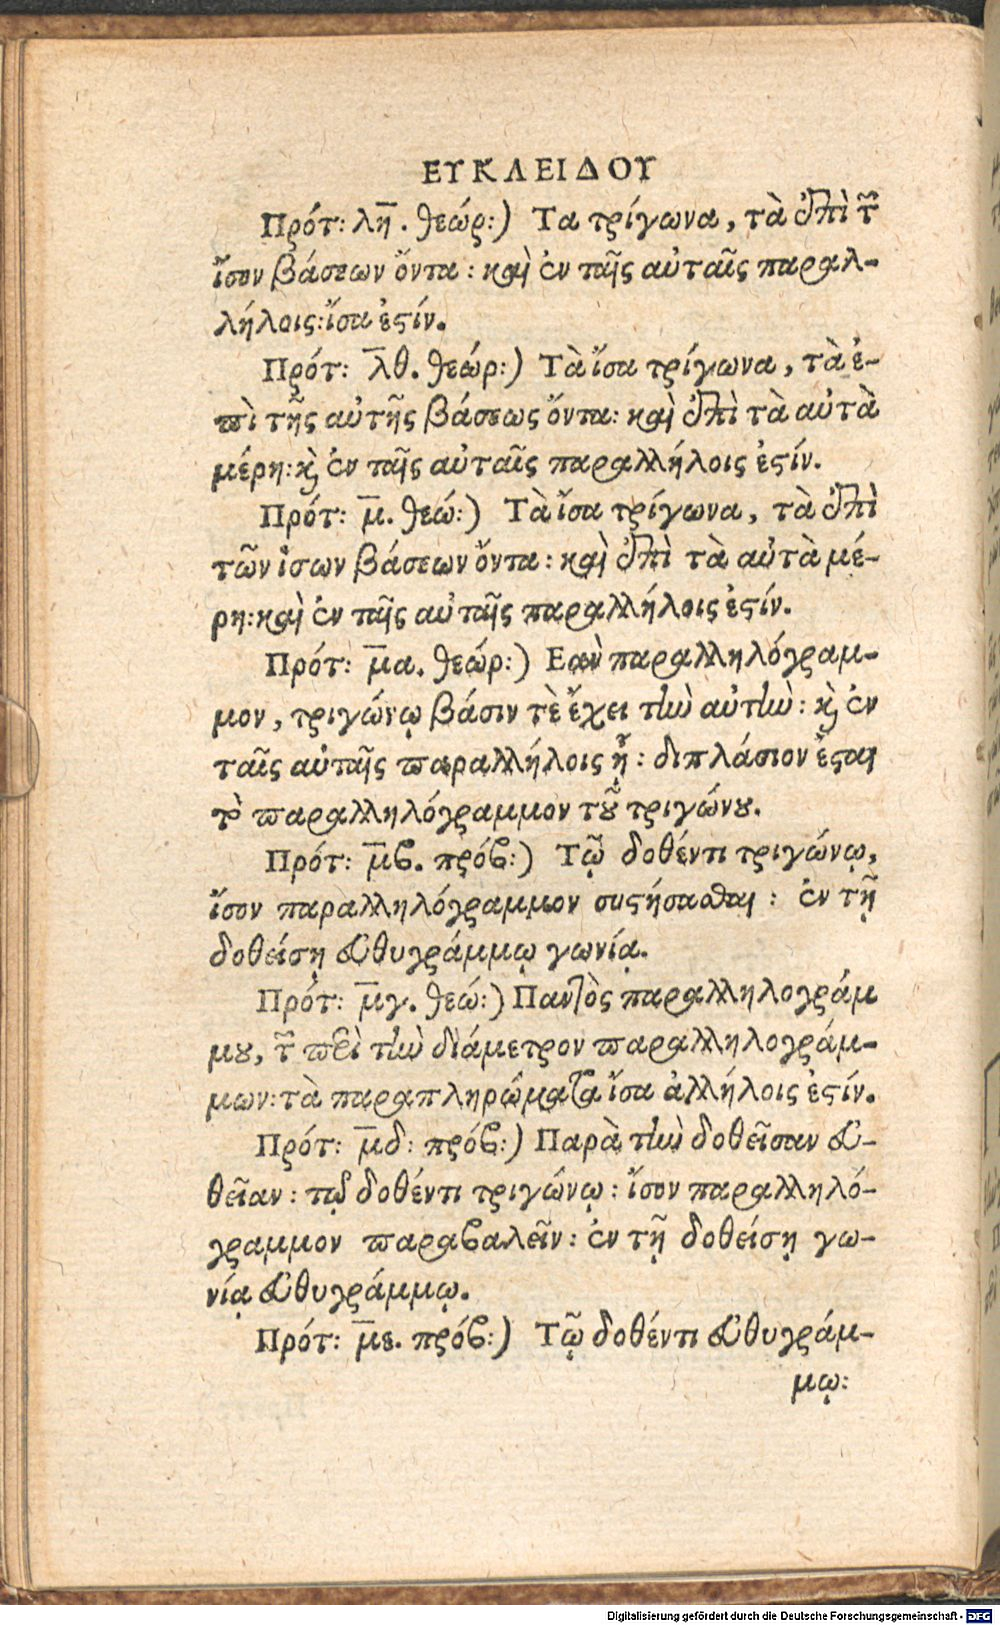 ΕΥΚΛΕΙΔΟΥ
Πρότ: λη̅. θεώρ:) Τα τρίγωνα, τὰ ἐπὶ τῶν
ἴσον βάσεων ὄντα: καὶ ἐν ταῖς αὐταῖς παραλ-
λήλοις: ἴσα ἐστίν.
Πρότ: λ̅θ. θεώρ:) Τὰ ἴσα τρίγωνα, τὰ ἐ-
πὶ τῆς αὐτῆς βάσεως ὄντα: καὶ ἐπὶ τὰ αὐτὰ
μέρη: κὶ ἐν ταῖς αὐταῖς παραλλήλοις ἐστίν.
Πρότ: μ̅. θεώ:) Τὰ ἴσα τρίγωνα, τὰ ἐπὶ
τῶν ἰσων βάσεων ὄντα: καὶ ἐπὶ τὰ αὐτὰ μέ-
ρη: καὶ ἐν ταῖς αὐταῖς παραλλήλοις ἐστίν.
Πρότ: μ̅α. θεώρ:) Εαὰν παραλληλόγραμ-
μον, τριγώνῳ βάσιν τὲ ἔχει τὴν αὐτὴν: κὶ ἐν
ταῖς αὐταῖς παραλλήλοις ᾖ: διπλάσιον ἔσται
τὸ παραλληλόγραμμον τοῦ τριγώνου.
Πρότ: μ̅β. πρόβ:) Τῷ δοθέντι τριγώνῳ,
ἴσον παραλληλόγραμμον συστήσασθαι: ἐν τῇ
δοθείσῃ εὐθυγράμμῳ γωνίᾳ.
Πρότ: μ̅γ. θεώ:) Παντὸς παραλληλογράμ
μου, τῶν περὶ τὴν διάμετρον παραλληλογράμ-
μων: τὰ παραπληρώματα ἴσα ἀλλήλοις ἐστίν.
Πρότ: μ̅δ: πρόβ:) Παρὰ τὴν δοθεῖσαν εὐ-
θεῖαν: τῷ δοθέντι τριγώνῳ: ἴσον παραλληλό-
γραμμον παραβαλεῖν: ἐν τῇ δοθείσῃ γω-
νίᾳ εὐθυγράμμῳ.
Πρότ: μ̅ε. πρόβ:) Τῷ δοθέντι εὐθυγράμ-
μῳ:
Digitalisierung gefördert durch die Deutsche Forschungsgemeinschaft - DFG